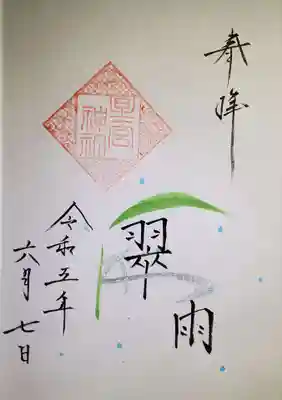 奉拝
翠雨
令和五年
六月七日